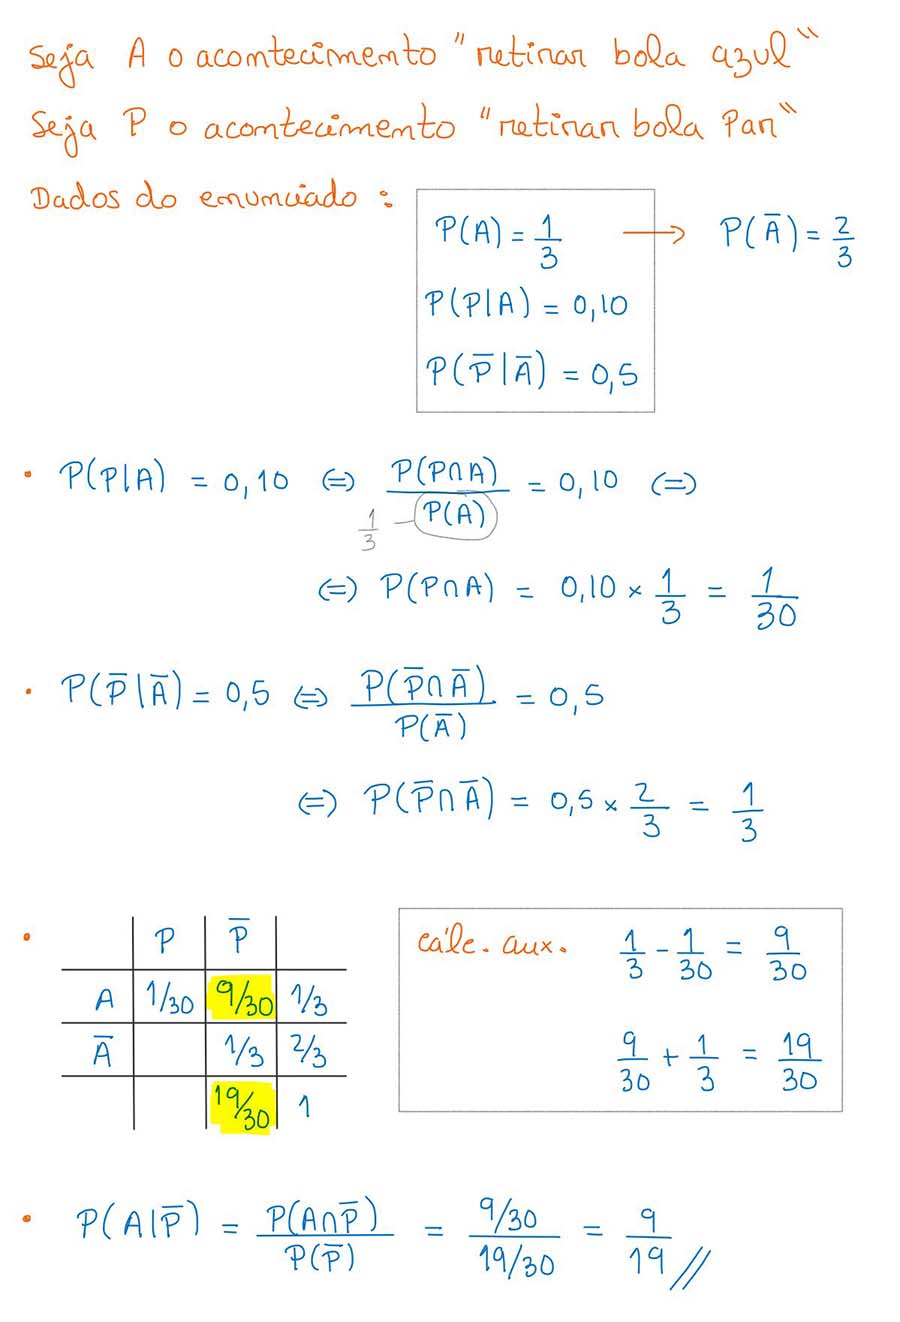 Seja A o acontecimento "retirar bola azul"
Seja P o acontecimento "retirar bola Par"
Dados do enunciado :
P(A) = 1/3 → P(A̅) = 2/3
P(P|A) = 0,10
P(P̅|A̅) = 0,5
• P(P|A) = 0,10 (=) P(P∩A)/P(A) = 0,10 (=)
1/3
(=) P(P∩A) = 0,10 × 1/3 = 1/30
• P(P̅|A̅) = 0,5 (=) P(P̅∩A̅)/P(A̅) = 0,5
(=) P(P̅∩A̅) = 0,5 × 2/3 = 1/3
• P P̅
A 1/30 9/30 1/3
A̅ 1/3 2/3
19/30 1
cálc. aux. 1/3 - 1/30 = 9/30
9/30 + 1/3 = 19/30
• P(A|P̅) = P(A∩P̅)/P(P̅) = 9/30/19/30 = 9/19 //